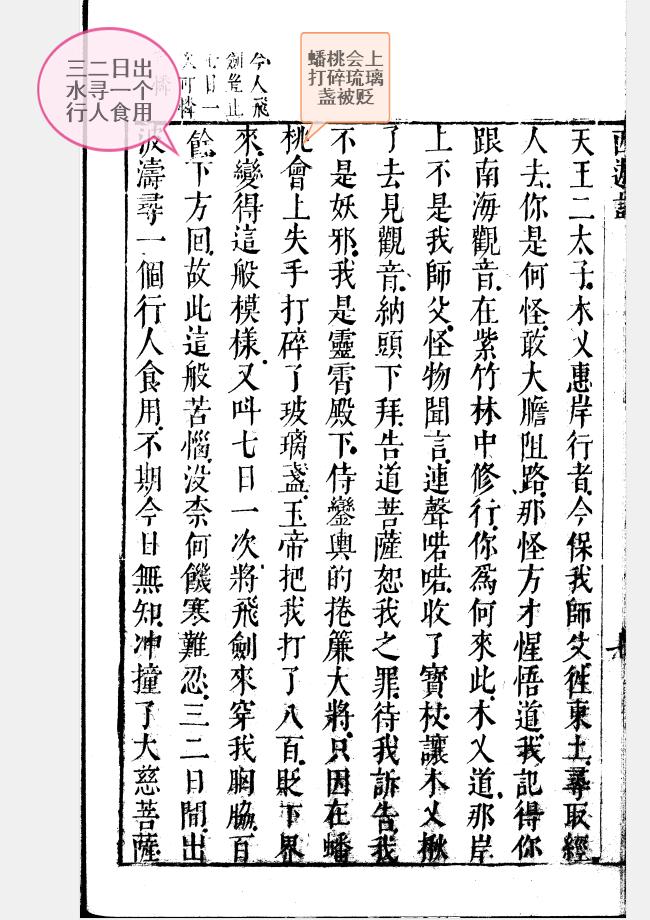 三二日出
水寻一个
行人食用
蟠桃会上
打碎琉璃
盏被贬
今人飛
劍豈止
七日一
可憐
西遊記
天王二太子木乂惠岸行者今保我師父徃東土尋取經
人去你是何怪敢大膽阻路那怪方才惺悟道我記得你
跟南海觀音在紫竹林中修行你爲何來此木乂道那岸
上不是我師父怪物聞言連聲喏喏收了寶杖讓木乂揪
了去見觀音納頭下拜告道菩薩恕我之罪待我訴告我
不是妖邪我是靈霄殿下侍鑾輿的捲簾大將只因在蟠
桃會上失手打碎了玻璃盞玉帝把我打了八百貶下界
來變得這般模樣又呌七日一次將飛劍來穿我胸脇百
餘下方回故此這般苦惱没柰何饑寒難忍三二日間出
波濤尋一個行人食用不期今日無知冲撞了大慈菩薩